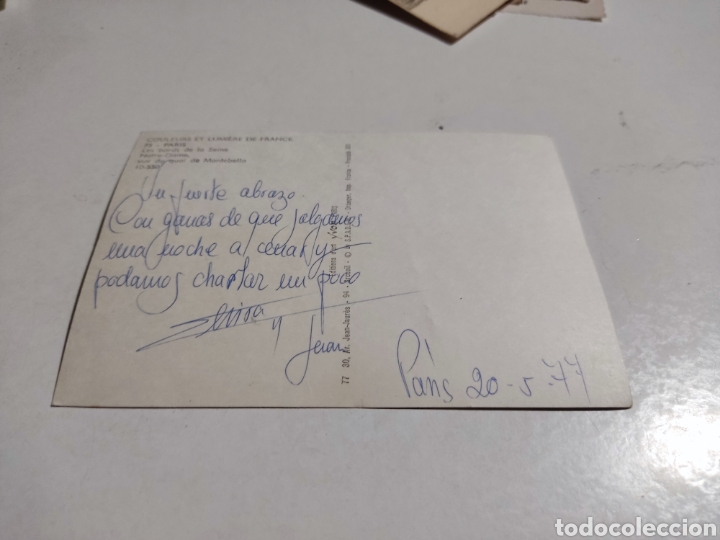 COULEURS ET LUMIÈRE DE FRANCE
75 - PARIS
Les bords de la Seine
Notre-Dame,
vue du quai de Montebello
Un fuerte abrazo.
Con ganas de que salgamos
una noche a cenar y
podamos charlar un poco
y
77 30, Av. Jean-Jaurès - 94
París 20-5-77
todocoleccion